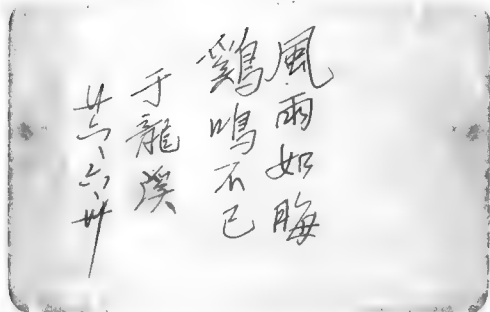 風雨如晦
鷄鳴不已
于龍溪
廿六、六、卅